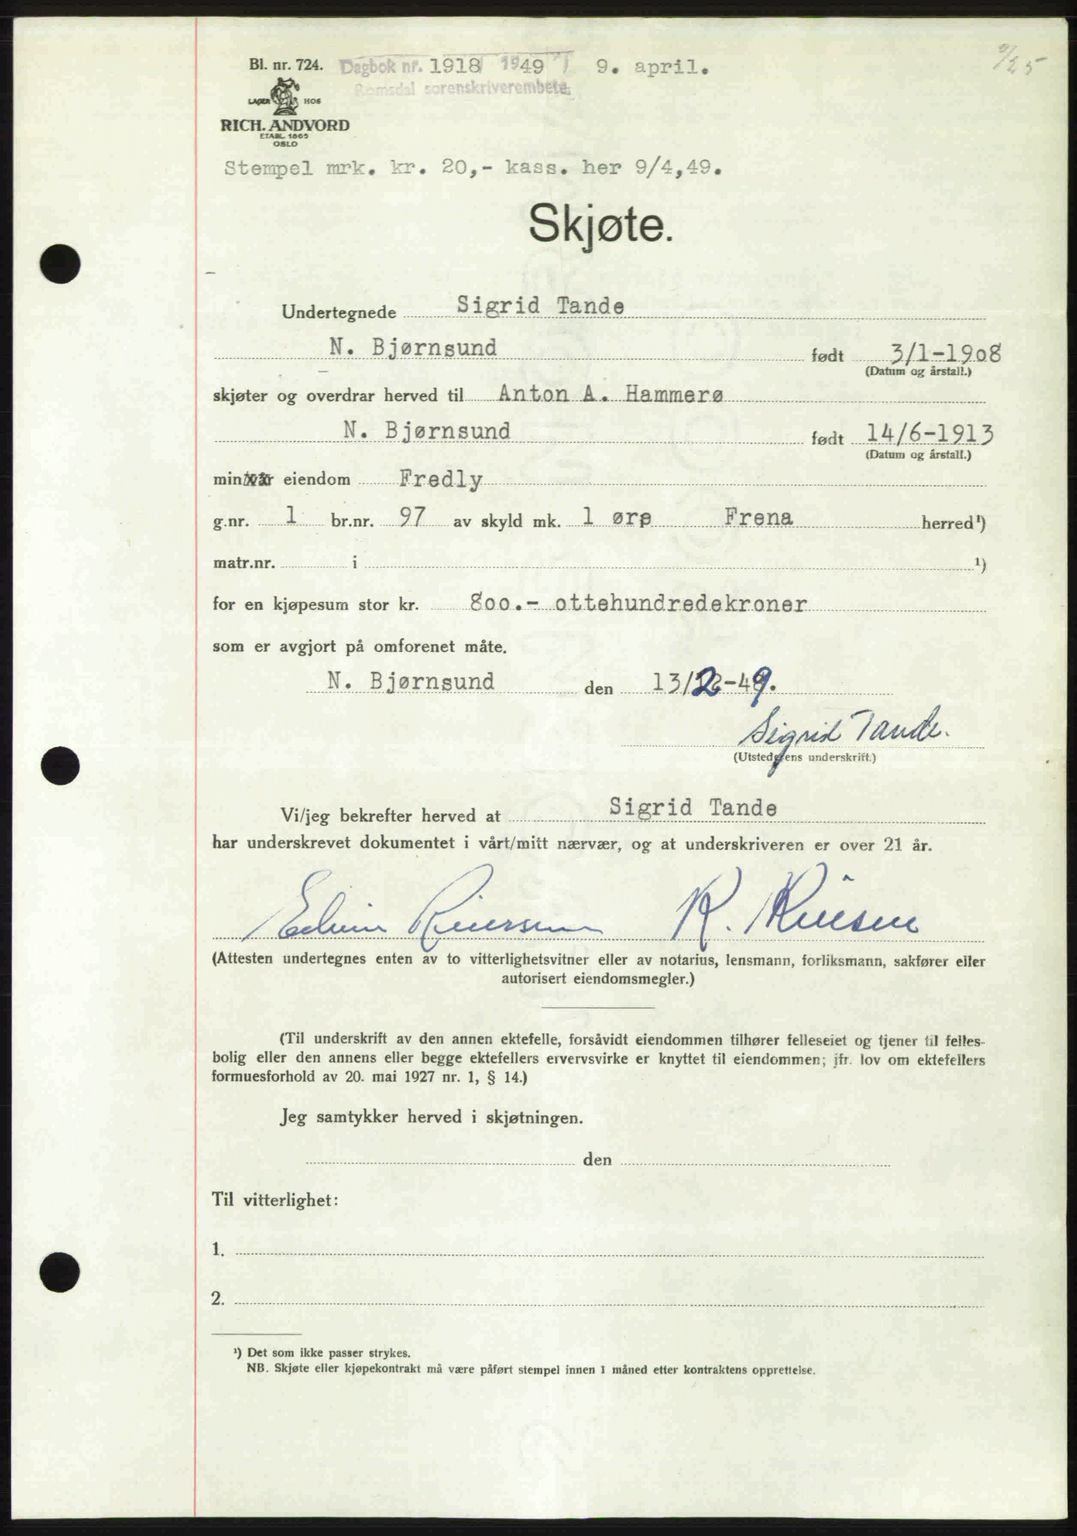 Bl. nr. 724. Dagbok nr. 1918 1949 9. april.
Romsdal sorenskriverembete
LAGER HOS
RICH. ANDVORD
ETABL. 1865
OSLO
Stempel mrk. kr. 20,- kass. her 9/4,49.
Skjøte.
Undertegnede Sigrid Tande
N. Bjørnsund født 3/1-1908
(Datum og årstall.)
skjøter og overdrar herved til Anton A. Hammerø
N. Bjørnsund født 14/6-1913
(Datum og årstall.)
min eiendom Fredly
g.nr. 1 br.nr. 97 av skyld mk. 1 øre Frena herred¹)
matr.nr. i ¹)
for en kjøpesum stor kr. 800.- ottehundredekroner
som er avgjort på omforenet måte.
N. Bjørnsund den 13/2-49.
Sigrid Tande.
(Utstederens underskrift.)
Vi/jeg bekrefter herved at Sigrid Tande
har underskrevet dokumentet i vårt/mitt nærvær, og at underskriveren er over 21 år.
Edvin K.
(Attesten undertegnes enten av to vitterlighetsvitner eller av notarius, lensmann, forliksmann, sakfører eller
autorisert eiendomsmegler.)
(Til underskrift av den annen ektefelle, forsåvidt eiendommen tilhører felleseiet og tjener til felles-
bolig eller den annens eller begge ektefellers ervervsvirke er knyttet til eiendommen; jfr. lov om ektefellers
formuesforhold av 20. mai 1927 nr. 1, § 14.)
Jeg samtykker herved i skjøtningen.
den
Til vitterlighet:
1.
2.
¹) Det som ikke passer strykes.
NB. Skjøte eller kjøpekontrakt må være påført stempel innen 1 måned etter kontraktens opprettelse.